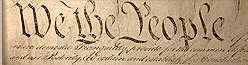 We the People
insure domestic Tranquility, provide for the common defence
and our Posterity, do ordain and establish this Constitution